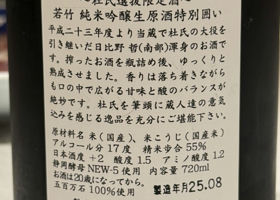 〜杜氏選抜限定酒〜
若竹 純米吟醸生原酒特別囲い
平成二十三年度より当蔵にて杜氏の大役を
引き継いだ日比野 哲(南部)渾身のお酒で
す。搾ったお酒を瓶詰め後、ゆっくりと
熟成させました。香りは落ち着きながら
も口の中で広がる甘味と酸のバランスが
絶妙です。杜氏を筆頭に蔵人達の意気
込みを感じる逸品を充分にご堪能下さい。
原材料名 米(国産)、米こうじ(国産米)
アルコール分 17 度 精米歩合 55%
日本酒度 +2 酸度 1.5 アミノ酸度 1.2
静岡酵母 NEW-5 使用 内容量 720ml
お酒は20歳になってから。
五百万石100%使用 製造年月25.08